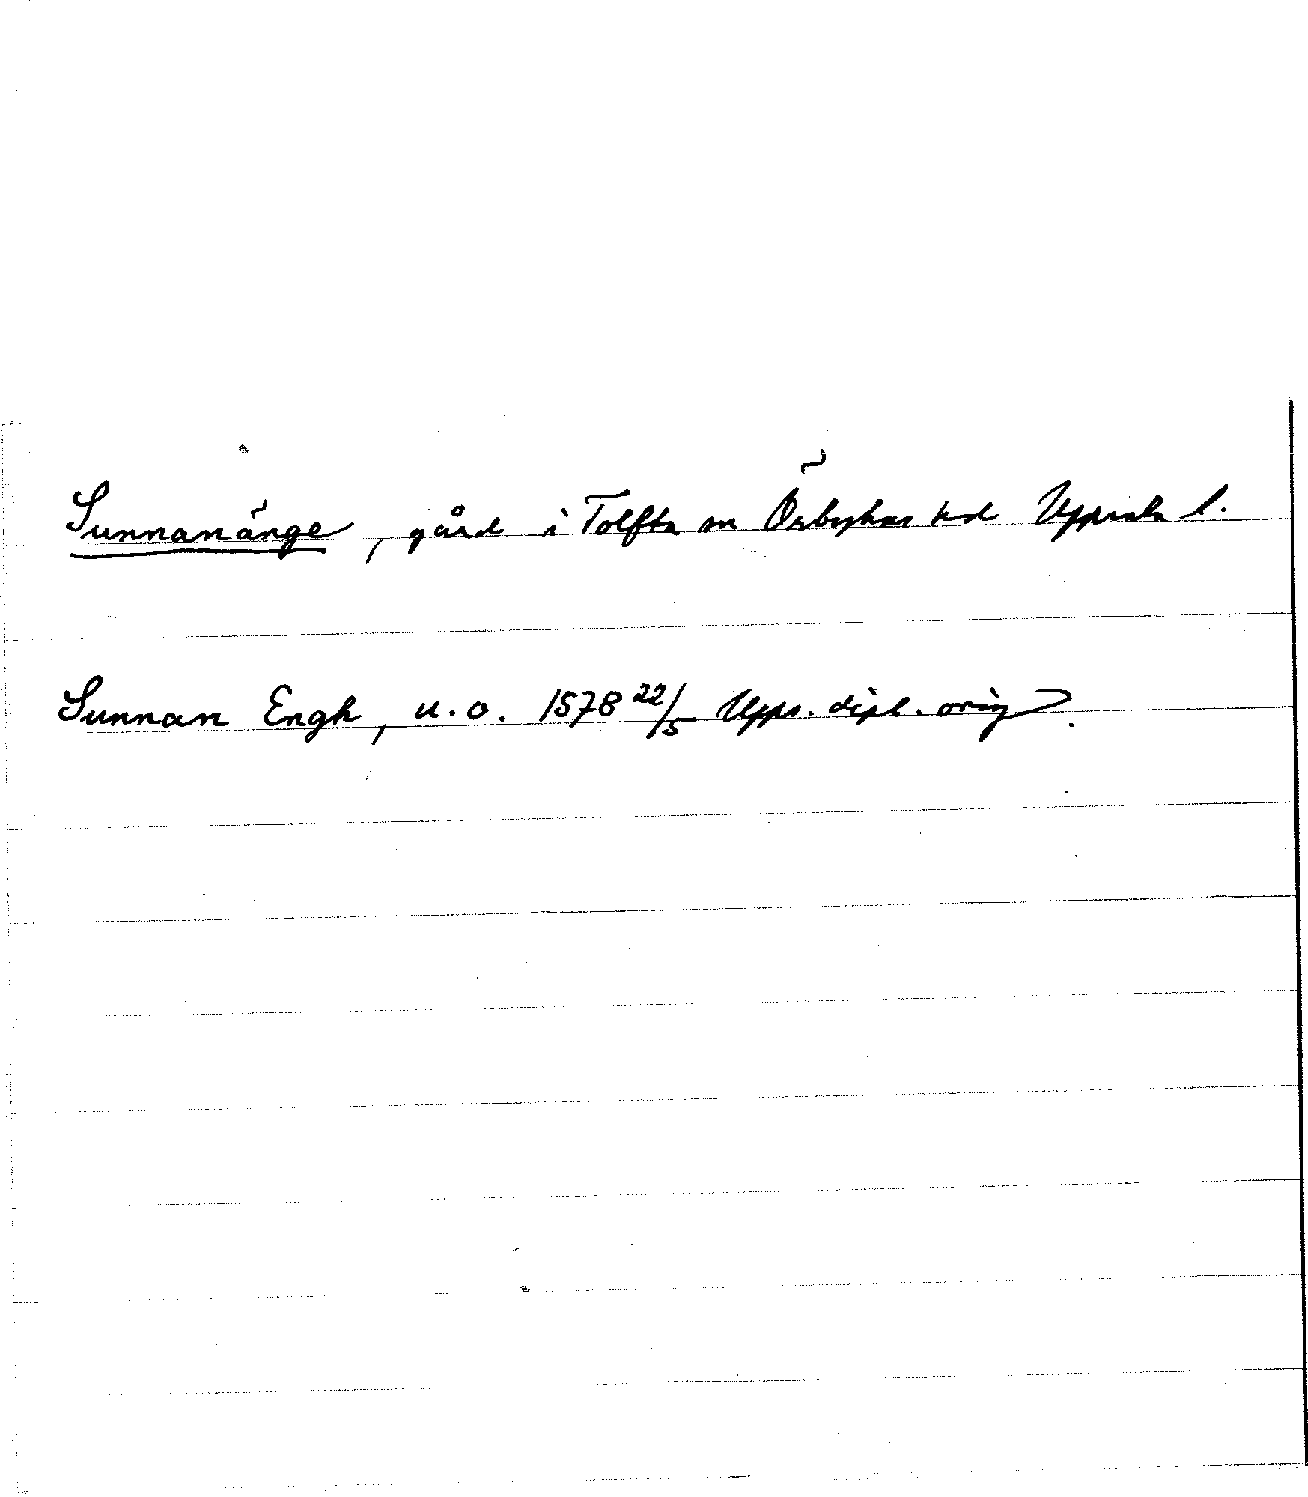 Sunnanänge, gård i Tolfta sn Örbyhus hd Uppsala l.
Sunnan Engh, u.o. 1578 22/5 Upps. dipl. orig.